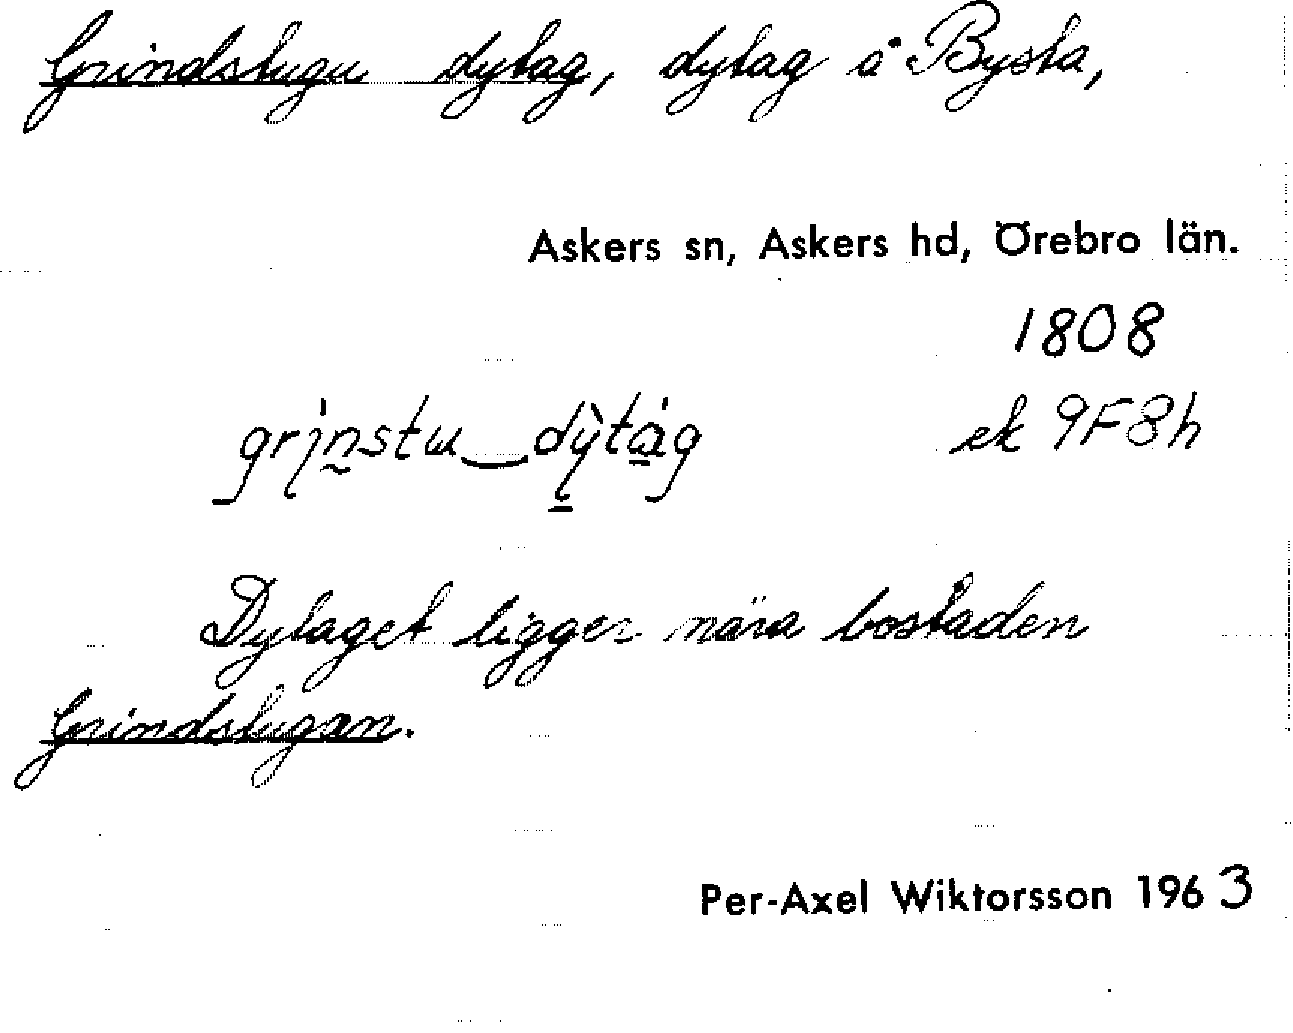 Grindstugu dytag, dytag å Bysta,
Askers sn, Askers hd, Örebro län.
1808
grinstu‿dỳtág ek 9F8h
Dytaget ligger nära bostaden
Grindstugan.
Per-Axel Wiktorsson 1963